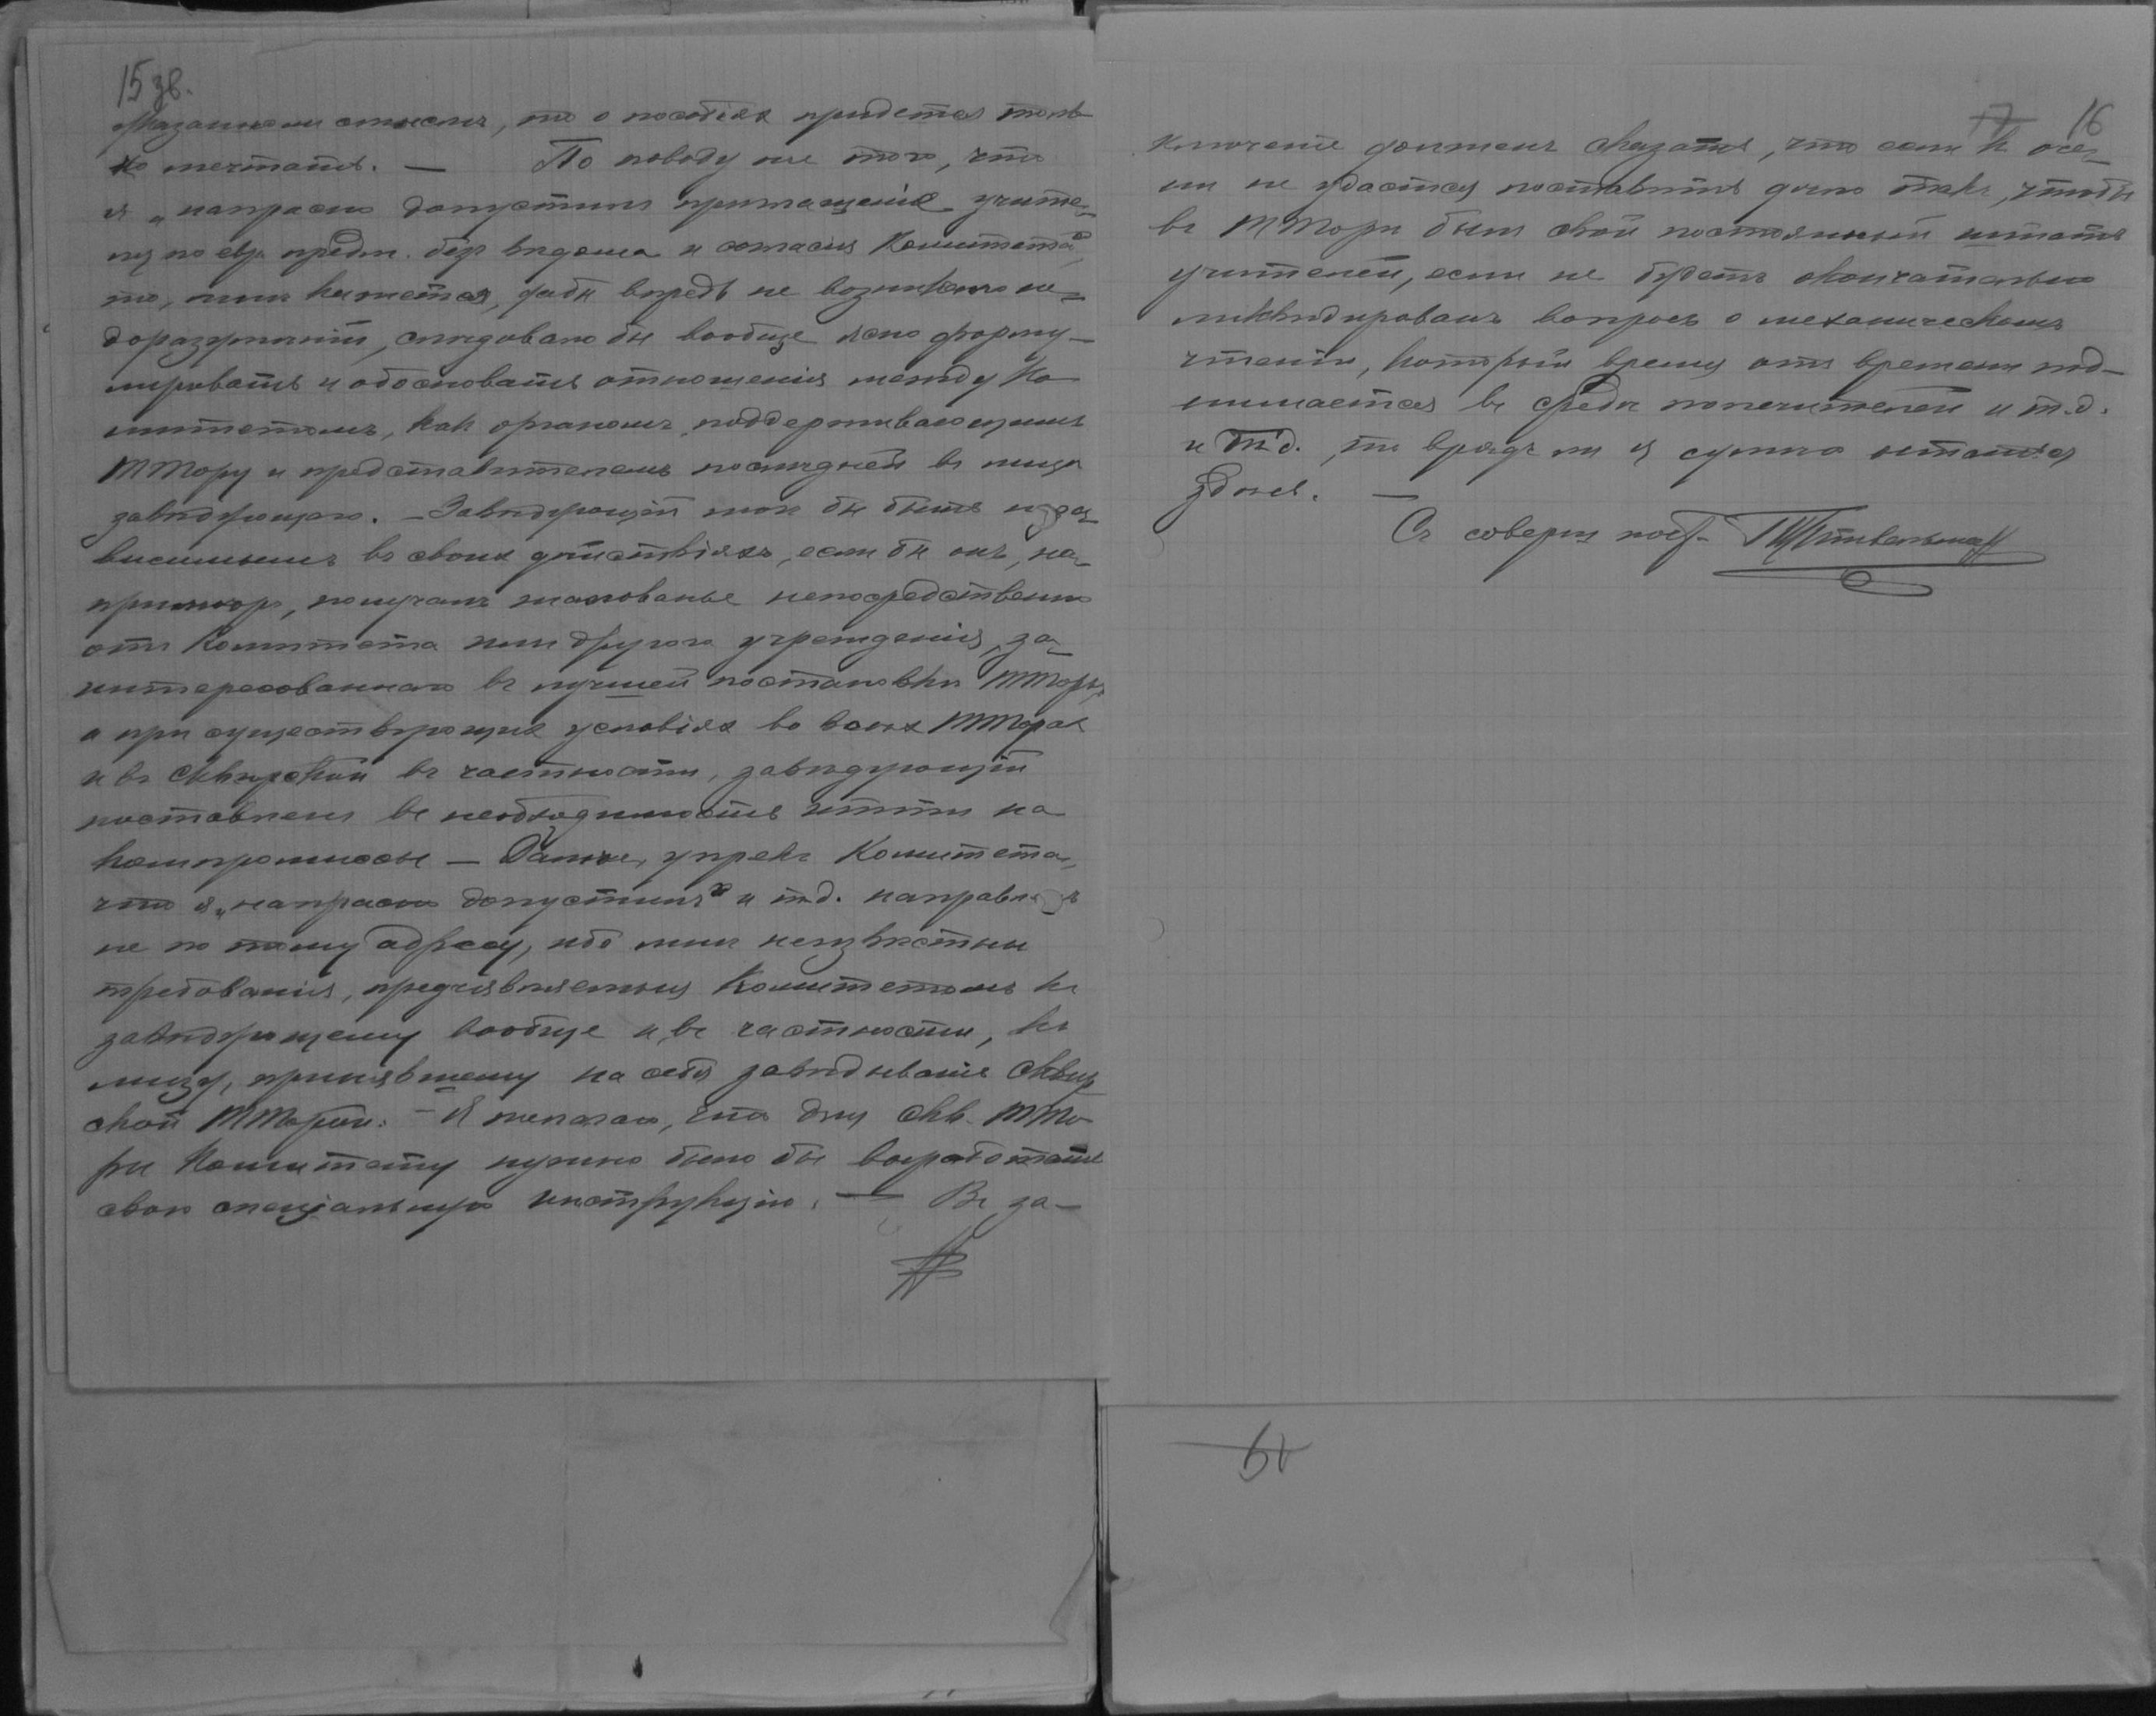 15 зв.
указанном смысле, то о пособіях придется толь-
ко мечтать. — По поводу же того, что
я „напрасно допустил приглашеніе учите-
ля по евр. предм. без ведома и согласія Комитета“,
то, мне кажется, дабы впредь не возникало не-
доразуменій, следовало бы вообще ясно форму-
лировать и обосновать отношенія между Ко-
митетомъ, как органомъ, поддерживающимъ
ТТору и представителемъ последней въ лице
заведующаго. — Заведующій мог бы быть неза-
висимымъ въ своих действіяхъ, если бы онъ, на-
примеръ, получалъ жалованье непосредственно
отъ Комитета или другого учрежденія, за-
интересованнаго въ лучшей постановке ТТоры,
а при существующих условіях во всех ТТорах
и въ Сквирской въ частности, заведующій
поставленъ въ необходимость итти на
компромиссы — Далее, упрекъ Комитета,
что я „напрасно допустилъ“ и т.д. направленъ
не по тому адресу, ибо мне неизвестны
требованія, предъявляемыя Комитетомъ къ
заведующему вообще и въ частности, къ
лицу, принявшему на себя заведываніе Сквир-
ской ТТорой. — Я полагаю, что для Скв. ТТо-
ры Комитету нужно было бы выработать
свою спеціальную инструкцію. — Въ за-
17 16
ключеніе долженъ сказать, что если к осе-
ни не удастся поставить дело такъ, чтобы
въ ТТоре былъ свой постоянный штатъ
учителей, если не будетъ окончательно
ликвидированъ вопросъ о механическомъ
чтеніи, который время отъ времени под-
нимается въ среде попечителей и т.д.
и т.д., то врядъ ли я сумею остаться
здесь. —
Съ соверш. почт.